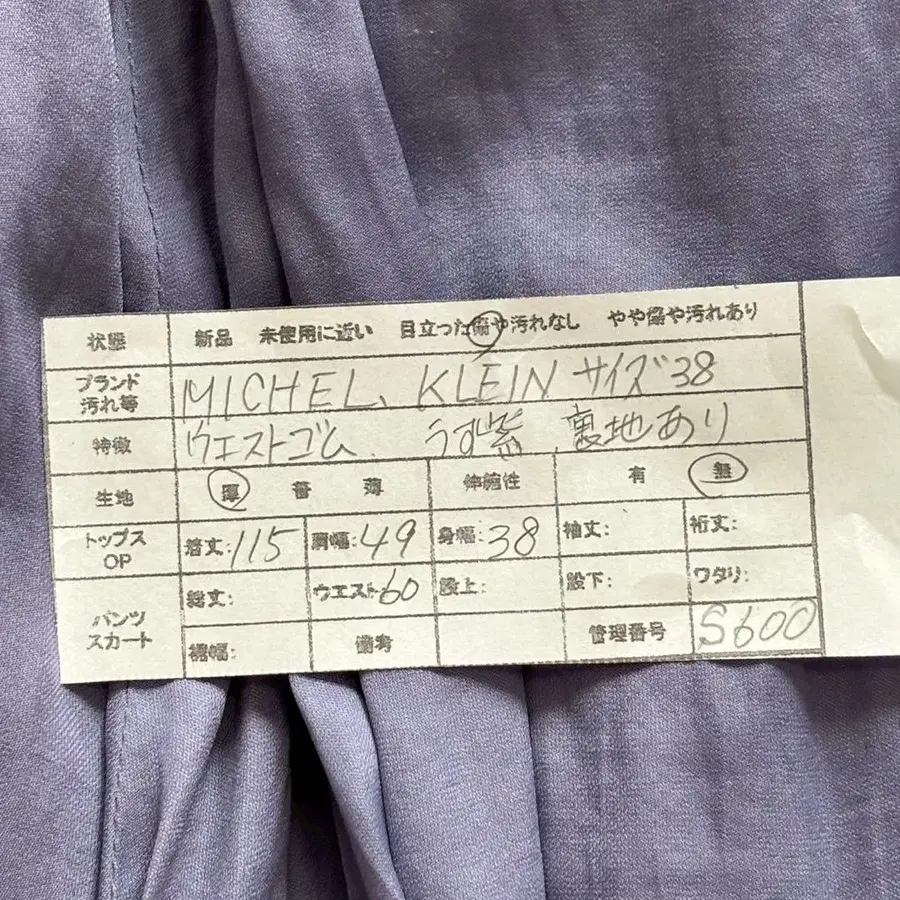 状態 新品 未使用に近い 目立った傷や汚れなし やや傷や汚れあり
ブランド 汚れ等 MICHEL KLEIN サイズ38
特徴 ウエストゴム うす紫 裏地あり
生地 厚 普 薄 伸縮性 有 無
トップス OP 着丈:115 肩幅:49 身幅:38 袖丈: 裄丈:
パンツ スカート 総丈: ウエスト60 股上: 股下: ワタリ:
裾幅: 備考 管理番号 S600